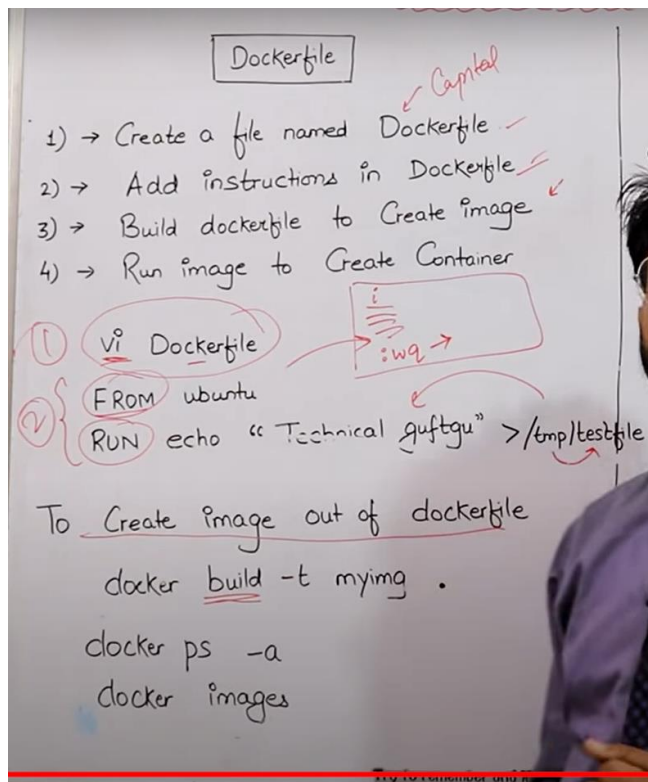 Dockerfile
Capital
1) → Create a file named Dockerfile
2) → Add instructions in Dockerfile
3) → Build dockerfile to Create image
4) → Run image to Create Container
i
:wq →
1 vi Dockerfile
2 FROM ubuntu
RUN echo “Technical guftgu” >/tmp/testfile
To Create image out of dockerfile
docker build -t myimg .
docker ps -a
docker images